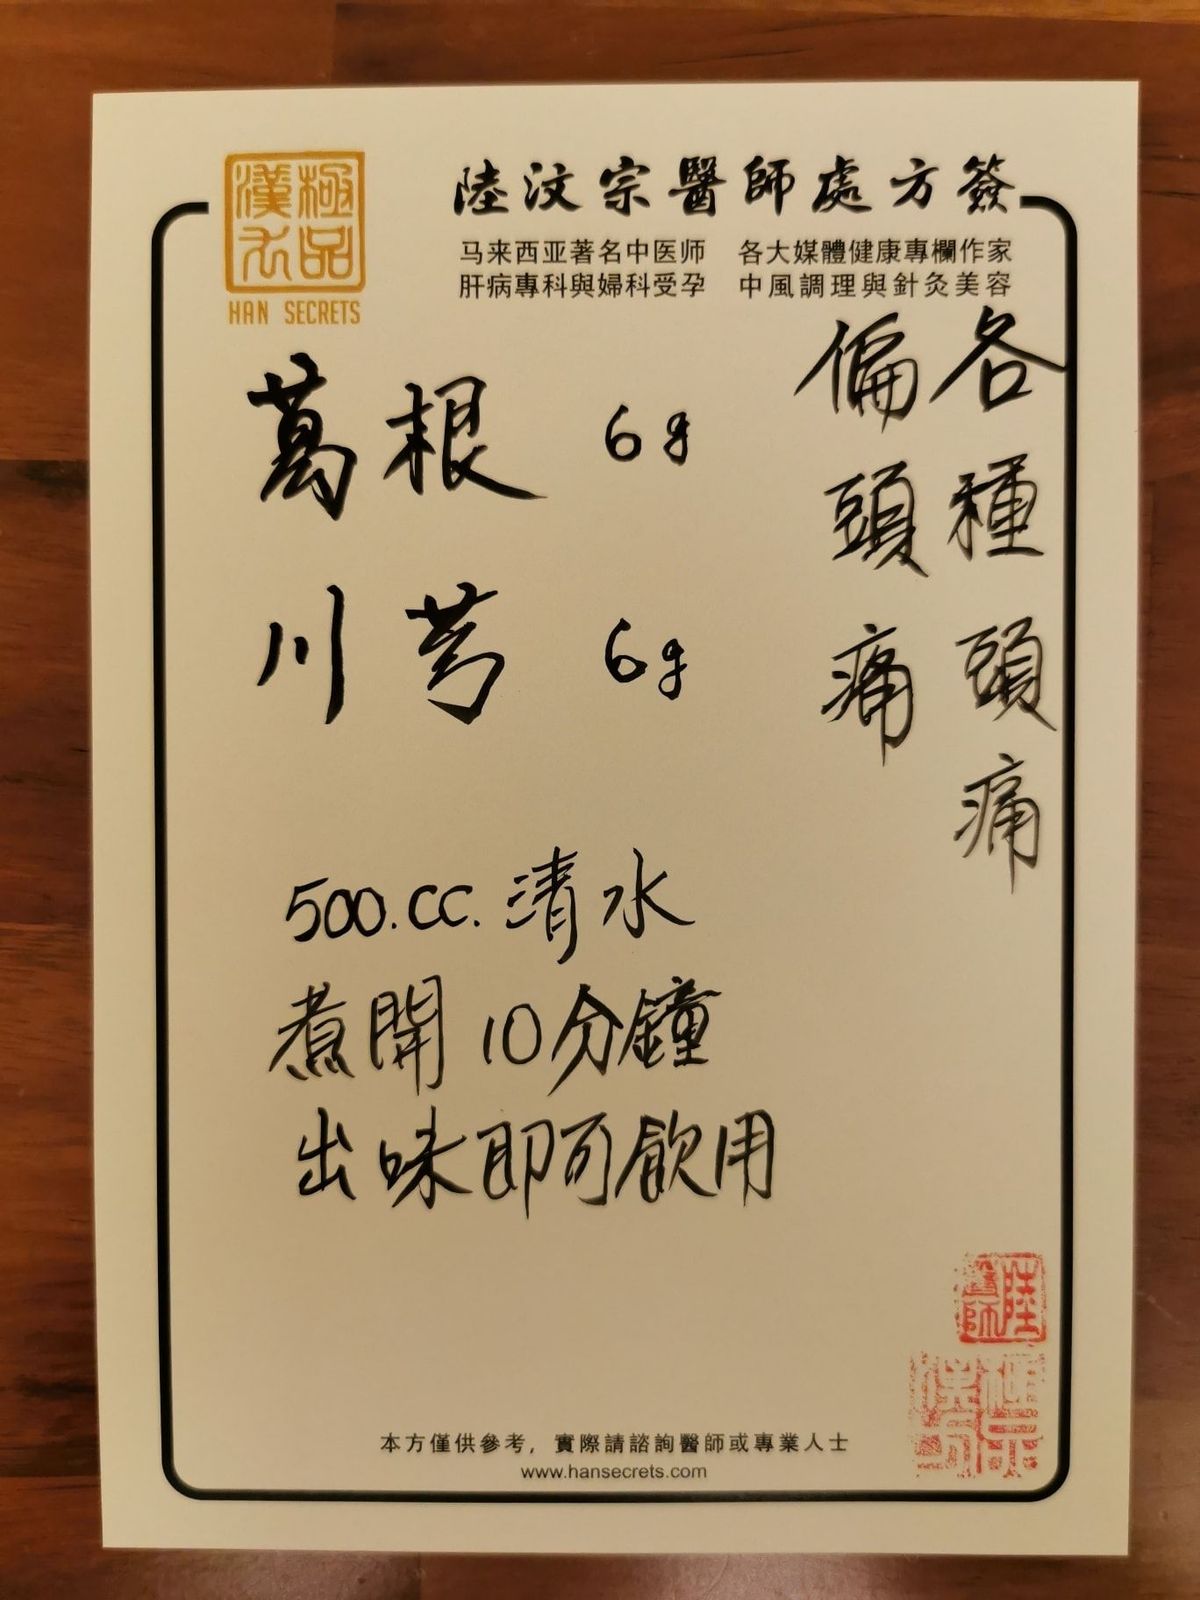 極品漢方
HAN SECRETS
陸汶宗醫師處方簽
马来西亚著名中医师 各大媒體健康專欄作家
肝病專科與婦科受孕 中風調理與針灸美容
各種頭痛
偏頭痛
葛根 6g
川芎 6g
500.CC.清水
煮開10分鐘
出味即可飲用
陸醫師
本方僅供參考，實際請諮詢醫師或專業人士
www.hansecrets.com